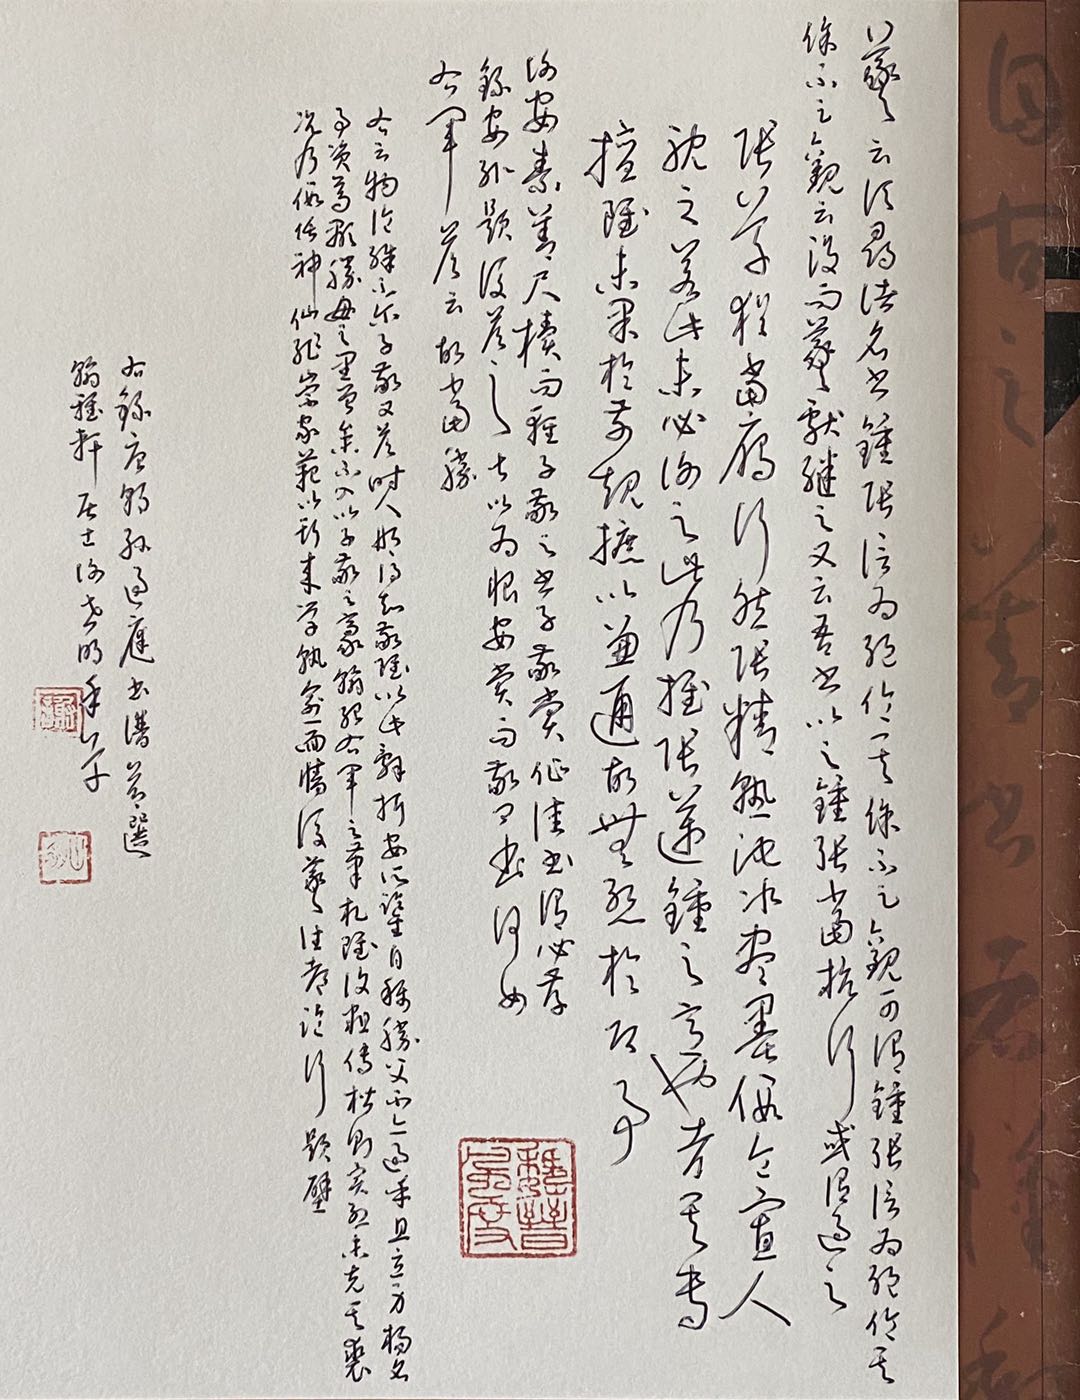 羲云頃尋諸名書鍾張信為絕倫其餘不足觀可謂鍾張信為絕倫其
餘不足觀云沒而羲獻繼之又云吾書比之鍾張當抗行或謂過之
張草猶當雁行然張精熟池水盡墨假令寡人
耽之若此未必謝之此乃推張邁鍾之意也考其專
擅雖未果於前規摭以兼通故無慙於即事
謝安素善尺牘而輕子敬之書子敬嘗作佳書謂必存
錄安輒題後答之甚以為恨安嘗問敬卿書何如
右軍答云故當勝
安云物論殊不爾子敬又答時人那得知敬雖以此辭折安所鑒自稱勝父不亦過乎且立身揚名
事資尊顯勝母之里曾參不入以子敬之豪翰紹右軍之筆札雖復粗傳楷則實恐未克箕裘
況乃假託神仙恥崇家範以斯成學孰愈面牆後羲往都臨行題壁
右錄唐朝孫過庭書譜首選
居士 草
魏晉風度